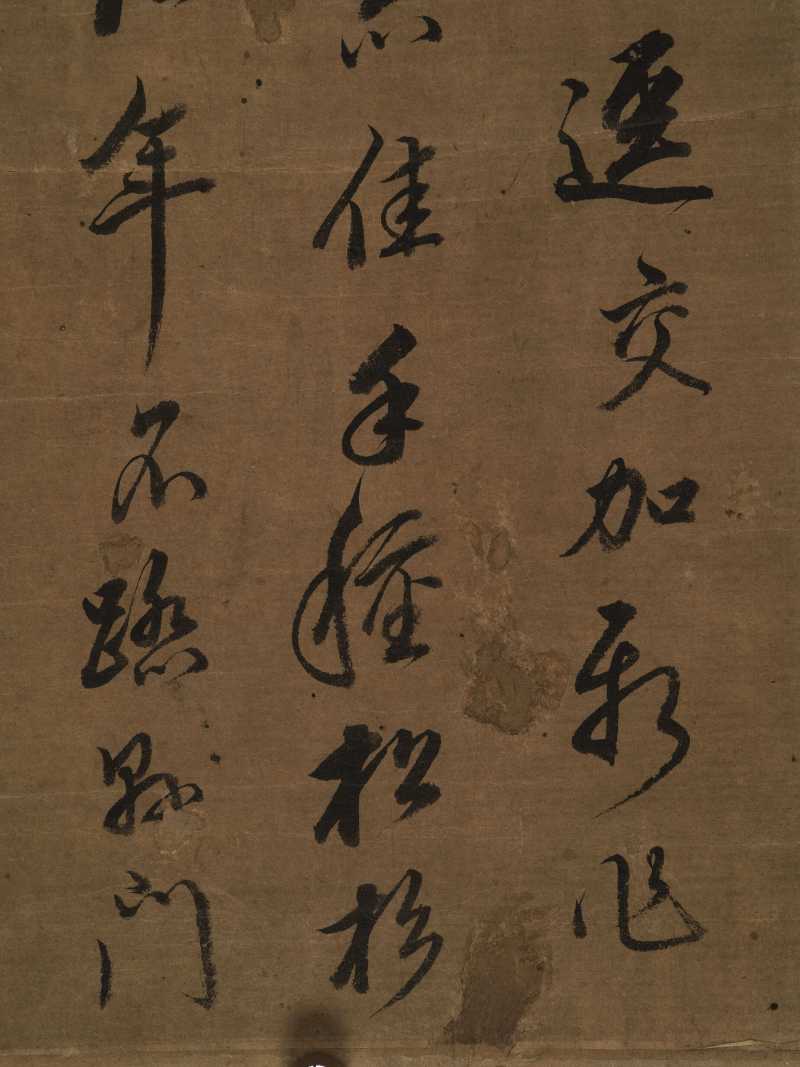 逕交加新作
佳手種松杉
年不踏縣門